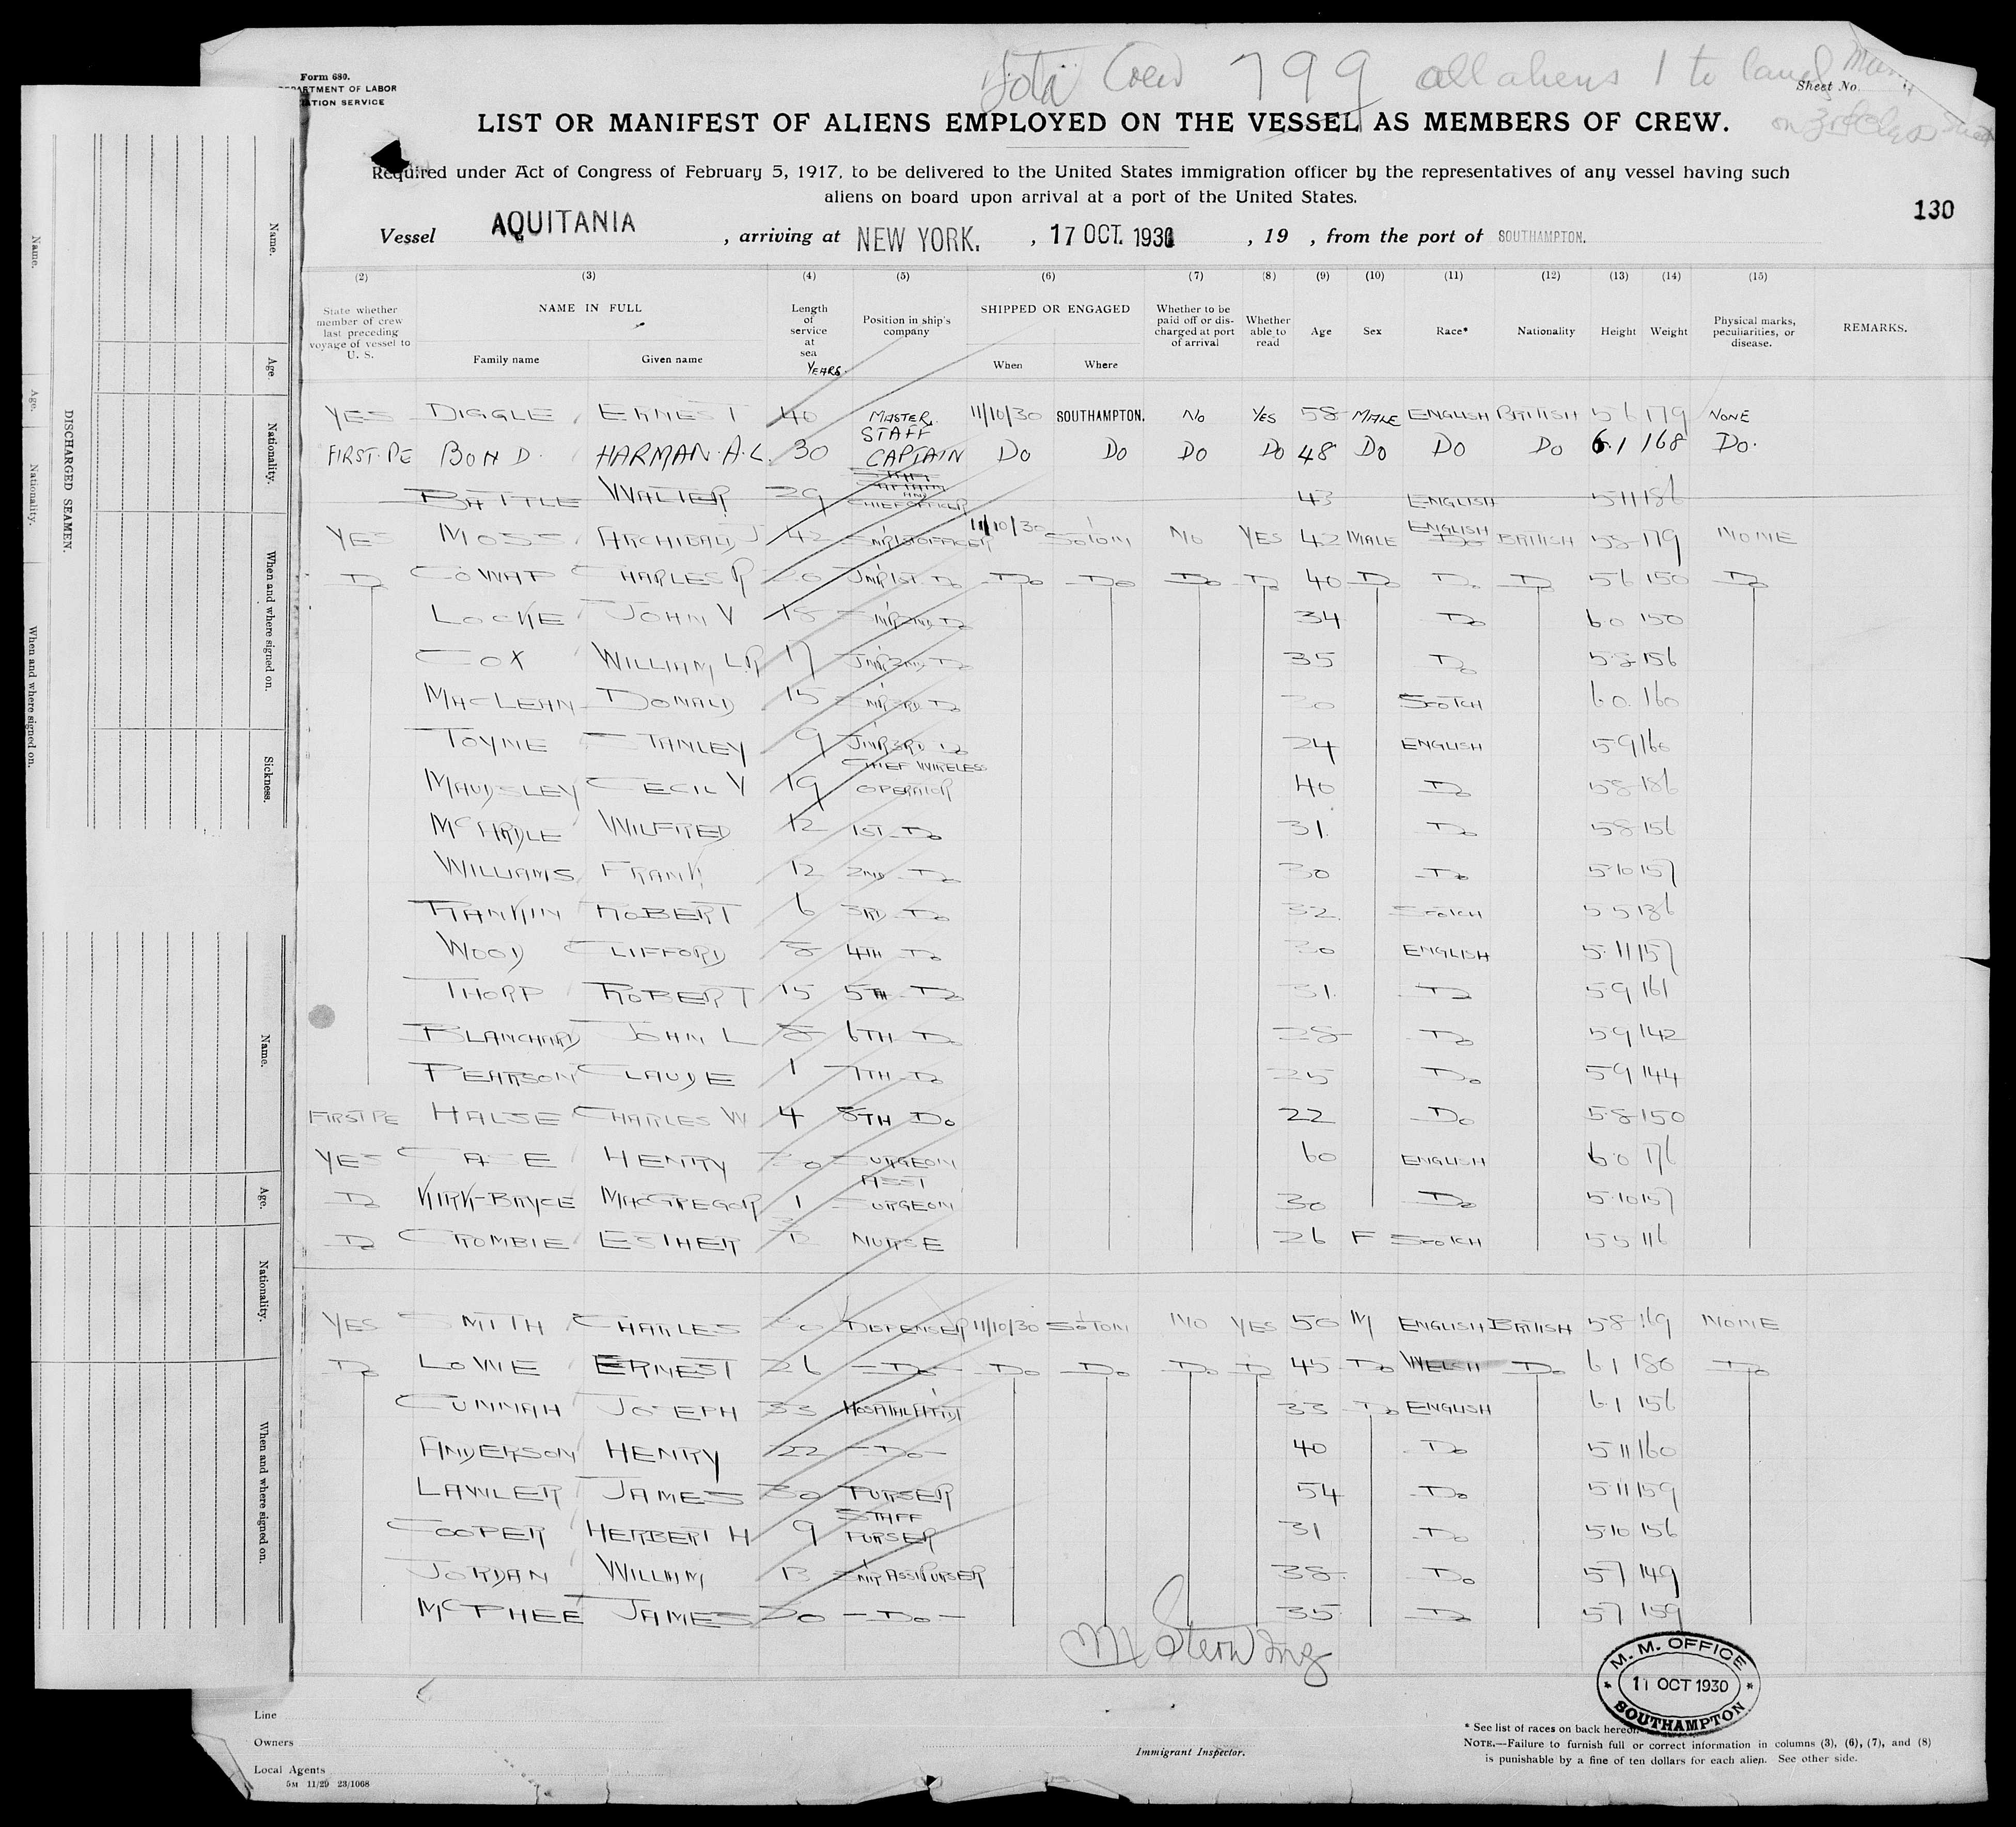 Total Crew 799 all aliens 1 to land
on 3rd Class
Form 680.
DEPARTMENT OF LABOR
Sheet No.
LIST OR MANIFEST OF ALIENS EMPLOYED ON THE VESSEL AS MEMBERS OF CREW.
Required under Act of Congress of February 5, 1917, to be delivered to the United States immigration officer by the representatives of any vessel having such
aliens on board upon arrival at a port of the United States.
130
Vessel AQUITANIA , arriving at NEW YORK. , 17 OCT. 1930 , 19 , from the port of SOUTHAMPTON.
(2) (3) (4) (5) (6) (7) (8) (9) (10) (11) (12) (13) (14) (15)
State whether member of crew last preceding voyage of vessel to U. S. NAME IN FULL Family name Given name Length of service at sea YEARS. Position in ship's company SHIPPED OR ENGAGED When Where Whether to be paid off or discharged at port of arrival Whether able to read Age Sex Race* Nationality Height Weight Physical marks, peculiarities, or disease. REMARKS.
YES DIGGLE ERNEST 40 MASTER 11/10/30 SOUTHAMPTON. NO YES 58 MALE ENGLISH BRITISH 5 6 179 NONE
FIRST PE BOND HARMAN A.L. 30 STAFF CAPTAIN DO DO DO DO 48 DO DO DO 6.1 168 DO.
BATTLE WALTER 29 CHIEF OFFICER 43 ENGLISH 5 11 186
YES MOSS ARCHIBALD J 42 SNR 1ST OFFICER 11/10/30 SOTON NO YES 42 MALE ENGLISH BRITISH 5 8 179 NONE
DO COWAP CHARLES R 20 JNR 1ST DO DO DO DO DO 40 DO DO DO 5 6 150 DO
LOCKE JOHN V 18 SNR 2ND DO 34 DO 6 0 150
COX WILLIAM L.R 17 JNR 2ND DO 35 DO 5 8 156
MACLEAN DONALD 15 SNR 3RD DO 30 SCOTCH 6 0 160
TOYNE STANLEY 9 JNR 3RD DO 24 ENGLISH 5 9 160
MAUDSLEY CECIL V 19 CHIEF WIRELESS OPERATOR 40 DO 5 8 186
MCARDLE WILFRED 12 1ST DO 31 DO 5 8 156
WILLIAMS FRANK 12 2ND DO 30 DO 5 10 157
RANKIN ROBERT 6 3RD DO 32 SCOTCH 5 5 136
WOOD CLIFFORD 8 4TH DO 30 ENGLISH 5 11 157
THORP ROBERT 15 5TH DO 31 DO 5 9 161
BLANCHARD JOHN L 8 6TH DO 28 DO 5 9 142
PEARSON CLAUDE 1 7TH DO 25 DO 5 9 144
FIRST PE HALSE CHARLES W 4 8TH DO 22 DO 5 8 150
YES CASE HENRY 30 SURGEON 60 ENGLISH 6 0 176
DO KIRK-BRYCE MACGREGOR 1 ASST SURGEON 30 DO 5 10 157
DO CROMBIE ESTHER NURSE 26 F SCOTCH 5 5 116
YES SMITH CHARLES 30 DISPENSER 11/10/30 SOTON NO YES 50 M ENGLISH BRITISH 5 8 169 NONE
DO LOWE ERNEST 26 DO DO DO DO DO 45 DO WELSH DO 6 1 180 DO
CUNNAH JOSEPH 33 HOSPITAL ATTDT 33 DO ENGLISH 6 1 156
ANDERSON HENRY 22 DO 40 DO 5 11 160
LAWLER JAMES 30 PURSER 54 DO 5 11 159
COOPER HERBERT H 9 STAFF PURSER 31 DO 5 10 156
JORDAN WILLIAM 13 SNR ASST PURSER 38 DO 5 7 149
MCPHEE JAMES 20 DO 35 DO 5 7 159
M. M. OFFICE
11 OCT 1930
SOUTHAMPTON
Line
Owners
Local Agents
5M 11/29 23/1068
Immigrant Inspector.
* See list of races on back hereof.
NOTE.—Failure to furnish full or correct information in columns (3), (6), (7), and (8)
is punishable by a fine of ten dollars for each alien. See other side.
DISCHARGED SEAMEN.
Name.
Age.
Nationality.
When and where signed on.
Sickness.
Name.
Age.
Nationality.
When and where signed on.
Name.
Age.
Nationality.
When and where signed on.